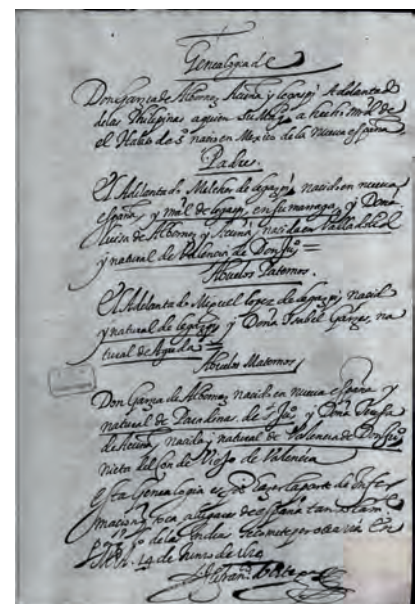 Genealogia de
Don Garcia de Albornoz, Acuña y legaspi Adelantado
delas Philipinas aquien Su Mag.d a hecho m.d de
el Habito de S nacio en Mexico de la Nueva españa
Padres.
El Adelantado Melchor de legazpi, nacido en nueva
españa, y nral de legazpi, en sumarraga, y Doña
Luisa de Albornoz y Acuña nacida en Valladolid
y natural de Valencia de Don Juº =
Abuelos Paternos.
El Adelantado Miguel lopez de legazpi nacido
y natural de legazpi y Doña Isabel Garces, na
tural de Aguda =
Abuelos Maternos
Don Garcia de Albornoz nacido en nueva españa y
natural de de S Juº, y Doña
de Acuña nacida y natural de Valencia de Don Juº
Nieta del Conde Viejo de Valencia
Esta Genealogia es Pº la parte de infor
maciones toca a lugares de españa tan solam.te
lo de las Indias se comete por otra via En
M.d 14 de Junio de 1624